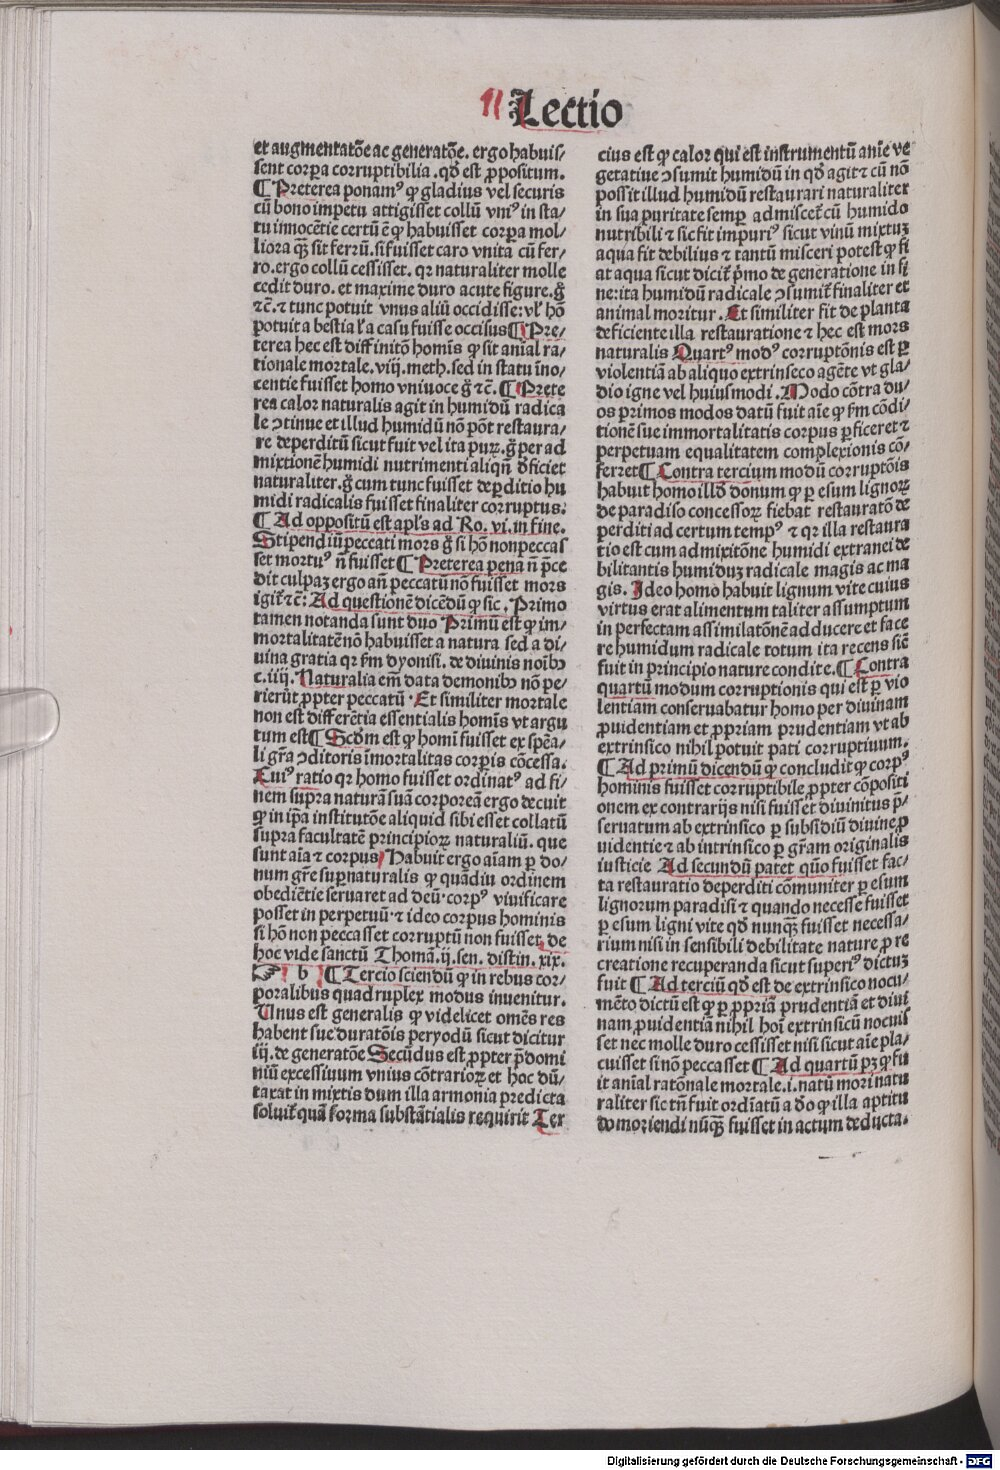 11 Lectio
et augmentatõe ac generatõe. ergo habuis⸗
sent corpa corruptibilia. qđ est ꝓpositum.
¶ Preterea ponamꝰ ꝙ gladius vel securis
cũ bono impetu attigisset collũ vniꝰ in sta⸗
tu innocẽtie certũ ẽ ꝙ habuisset corpa mol⸗
liora qꝫ sit ferrũ. si fuisset caro vnita cũ fer⸗
ro. ergo collũ cessisset. qꝛ naturaliter molle
cedit duro. et maxime duro acute figure. g̃
⁊c̃. ⁊ tunc potuit vnus aliũ occidisse: vl' hõ
potuit a bestia l'a casu fuisse occisus ¶ Pre⸗
terea hec est diffinitõ homĩs ꝙ sit anĩal ra⸗
tionale mortale. viij. meth. sed in statu ĩno⸗
centie fuisset homo vniuoce g̃ ⁊c̃. ¶ Prete
rea calor naturalis agit in humidũ radica
le ꝯtinue et illud humidũ nõ põt restaura⸗
re deperditũ sicut fuit vel ita puꝝ. g̃ per ad
mixtionẽ humidi nutrimenti aliqñ d̃ficiet
naturaliter. g̃ cum tunc fuisset deperditio hu
midi radicalis fuisset finaliter corruptus:
¶ Ad oppositũ est apl's ad Ro. vi. in fine.
Stipendiũ peccati mors g̃ si hõ non peccas
set mortuꝰ ñ fuisset ¶ Preterea pena ñ p̃ce
dit culpaꝫ ergo añ peccatũ nõ fuisset mors
igit̃ ⁊c̃: Ad questionẽ dicẽdũ ꝙ sic. Primo
tamen notanda sunt duo Primũ est ꝙ im⸗
mortalitatẽ nõ habuisset a natura sed a di⸗
uina gratia qꝛ fm dyonisi. de diuinis noĩbꝫ
c. iiij. Naturalia em̃ data demonibꝫ nõ pe⸗
rierũt ꝓpter peccatũ · Et similiter mortale
non est differẽtia essentialis homĩs vt argu
tum est ¶ Scđm est ꝙ homĩ fuisset ex spẽa⸗
li gr̃a ꝯditoris ĩmortalitas corpis cõcessa.
Cuiꝰ ratio qꝛ homo fuisset ordinatꝰ ad fi⸗
nem supra naturã suã corporeã ergo decuit
ꝙ in ip̃a institutõe aliquid sibi esset collatũ
supra facultatẽ principioꝝ naturaliũ. que
sunt aĩa ⁊ corpus. Habuit ergo aĩam ꝑ do⸗
num gr̃e supnaturalis ꝙ quãdiu ordinem
obediẽtie seruaret ad deũ · corpꝰ viuificare
posset in perpetuũ · ⁊ ideo corpus hominis
si hõ non peccasset corruptũ non fuisset, de
hoc vide sanctũ Thomã. ij. sen. distin. xix.
☞ b ¶ Tercio sciendũ ꝙ in rebus cor⸗
poralibus quadruplex modus inuenitur.
Unus est generalis ꝙ videlicet omẽs res
habent sue duratõis peryodũ sicut dicitur
ij. de generatõe Secũdus est ꝓpter p̃domi
niũ excessiuum vnius cõtrarioꝝ et hoc dũ⸗
taxat in mixtis dum illa armonia predicta
soluit̃ quã forma substãtialis requirit Ter
cius est ꝙ calor qui est instrumentũ anĩe ve
getatiue ꝯsumit humidũ in qđ agit ⁊ cũ nõ
possit illud humidũ restaurari naturaliter
in sua puritate semp admiscet̃ cũ humido
nutribili ⁊ sic fit impuriꝰ sicut vinũ mixtuꝫ
aqua fit debilius ⁊ tantũ misceri potest ꝙ fi
at aqua sicut dicit̃ p̃mo de generatione in fi
ne: ita humidũ radicale ꝯsumit̃ finaliter et
animal moritur. Et similiter fit de planta
deficiente illa restauratione ⁊ hec est mors
naturalis Quartꝰ modꝰ corruptõnis est ꝑ
violentiã ab aliquo extrinseco agẽte vt gla⸗
dio igne vel huiusmodi. Modo cõtra du⸗
os primos modos datũ fuit aĩe ꝙ fm cõdi⸗
tionẽ sue immortalitatis corpus ꝑficeret ⁊
perpetuam equalitatem complexionis cõ⸗
ferret ¶ Contra tercium modũ corruptõis
habuit homo illđ donum ꝙ ꝑ esum lignoꝝ
de paradiso concessoꝝ fiebat restauratõ de
perditi ad certum tempꝰ ⁊ qꝛ illa restaura
tio est cum admixtõne humidi extranei de
bilitantis humiduꝫ radicale magis ac ma
gis. Ideo homo habuit lignum vite cuius
virtus erat alimentum taliter assumptum
in perfectam assimilatõnẽ adducere et face
re humidum radicale totum ita recens siẽ
fuit in principio nature condite. ¶ Contra
quartũ modum corruptionis qui est ꝑ vio
lentiam conseruabatur homo per diuinam
ꝓuidentiam et ꝓpriam prudentiam vt ab
extrinsico nihil potuit pati corruptiuum.
¶ Ad primũ dicendũ ꝙ concludit ꝙ corpꝰ
hominis fuisset corruptibile ꝓpter cõpositi
onem ex contrarijs nisi fuisset diuinitus p̃⸗
seruatum ab extrinsico ꝑ subsidiũ diuine ꝓ
uidentie ⁊ ab intrinsico ꝑ gr̃am originalis
iusticie Ad secundũ patet quõ fuisset fac⸗
ta restauratio deperditi cõmuniter ꝑ esum
lignorum paradisi ⁊ quando necesse fuisset
ꝑ esum ligni vite qđ nunqꝫ fuisset necessa⸗
rium nisi in sensibili debilitate nature ꝓ re
creatione recuperanda sicut superiꝰ dictuꝫ
fuit ¶ Ad terciũ qđ est de extrinsico nocu⸗
mẽto dictũ est ꝙ ꝑ ꝓpriã prudentiã et diui
nam ꝓuidentiã nihil hoĩ extrinsicũ nocuis
set nec molle duro cessisset nisi sicut aĩe pla⸗
cuisset si nõ peccasset ¶ Ad quartũ pꝫ ꝙ fu
it anĩal ratõnale mortale. i. natũ mori natu
raliter sic tñ fuit ordĩatũ a đo ꝙ illa aptitu
do moriendi nũqꝫ fuisset in actum deducta.
Digitalisierung gefördert durch die Deutsche Forschungsgemeinschaft - DFG